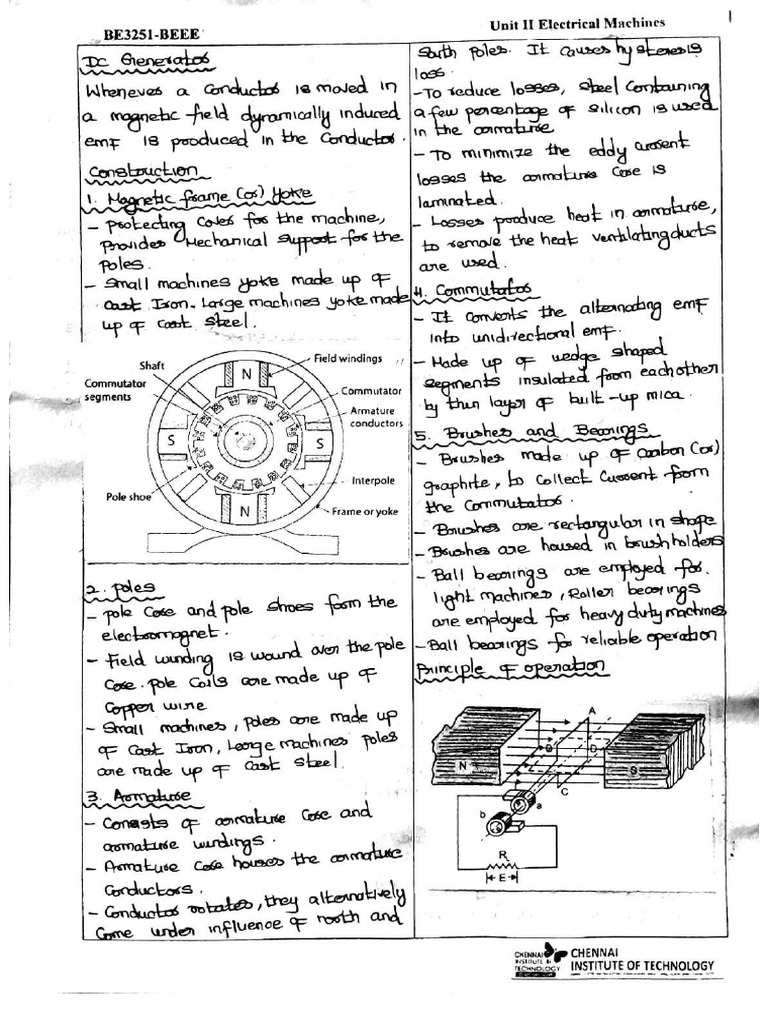 BE3251-BEEE
Unit II Electrical Machines
1
DC Generator
Whenever a conductor is moved in
a magnetic field dynamically induced
emf is produced in the conductor.
Construction
1. Magnetic frame (or) Yoke
- Protecting cover for the machine,
Provides Mechanical support for the
Poles.
- Small machines yoke made up of
Cast Iron. Large machines yoke made
up of cast steel.
Shaft
Commutator
segments
Field windings
Commutator
Armature
conductors
Interpole
Frame or yoke
Pole shoe
N
S
S
N
2. Poles
- Pole core and pole shoes form the
electromagnet.
- Field winding is wound over the pole
core. Pole coils are made up of
Copper wire
- Small machines, poles are made up
of Cast Iron, Large machines Poles
are made up of Cast Steel.
3. Armature
- Consists of armature core and
armature windings.
- Armature core houses the armature
Conductors.
- Conductor rotates, they alternatively
come under influence of north and
South Poles. It causes hysteresis
loss.
- To reduce losses, steel containing
a few percentage of silicon is used
in the armature
- To minimize the eddy current
losses the armature core is
laminated.
- Losses produce heat in armature,
to remove the heat ventilating ducts
are used.
4. Commutator
- It converts the alternating emf
into unidirectional emf.
- Made up of wedge shaped
segments insulated from each other
by thin layer of built-up mica.
5. Brushes and Bearings
- Brushes made up of carbon (or)
graphite, to collect current from
the commutator.
- Brushes are rectangular in shape
- Brushes are housed in brush holders
- Ball bearings are employed for
light machines, Roller bearings
are employed for heavy duty machines
- Ball bearings for reliable operation
Principle of operation
A
N
B
D
S
C
a
b
R
E
CHENNAI
INSTITUTE OF
TECHNOLOGY
CHENNAI
INSTITUTE OF TECHNOLOGY